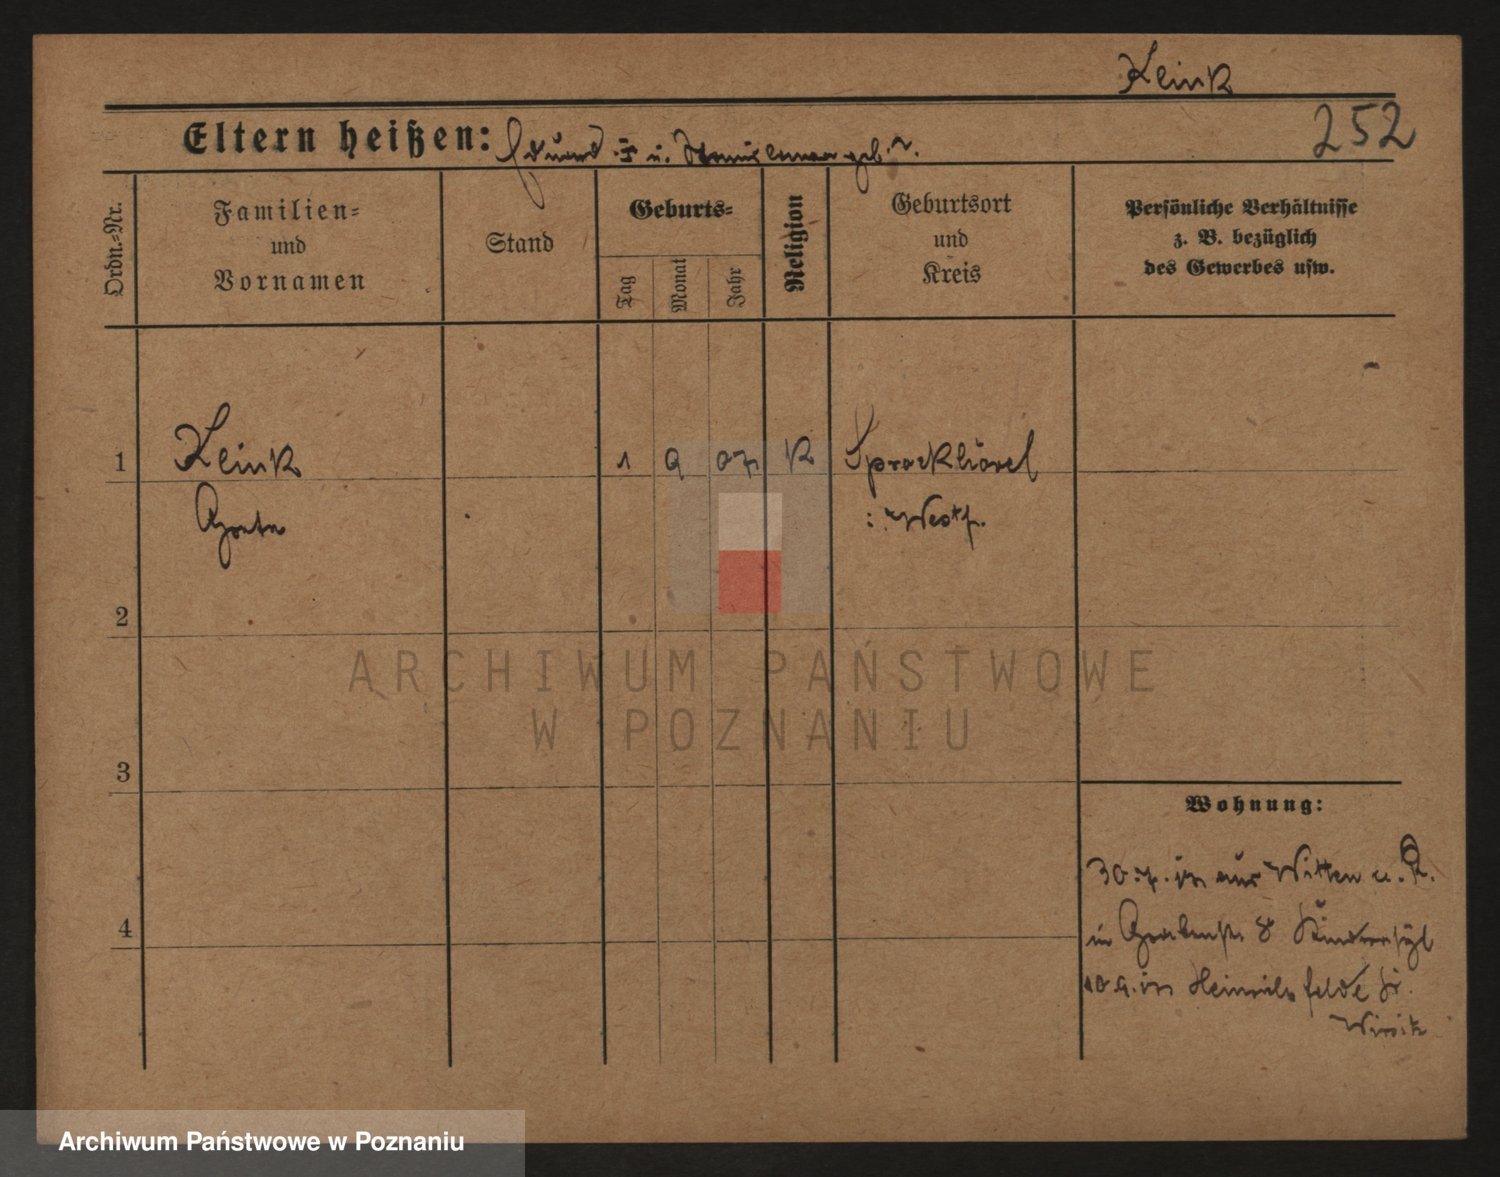 Klink
Eltern heißen: Eduard u. geb. ?.
252
Ordn.-Nr.
Familien-
und
Vornamen
Stand
Geburts-
Tag
Monat
Jahr
Religion
Geburtsort
und
Kreis
Persönliche Verhältnisse
z. B. bezüglich
des Gewerbes usw.
1
Klink
1 9 07 K Sprockhövel
Greta
i. Westf.
2
ARCHIWUM PAŃSTWOWE
W POZNANIU
3
Wohnung:
30. 7. 17 aus Witten a. R.
in 8 Kinderasyl
4
10. 9. 17 Heinrichsfelde Kr.
Wirsitz
Archiwum Państwowe w Poznaniu